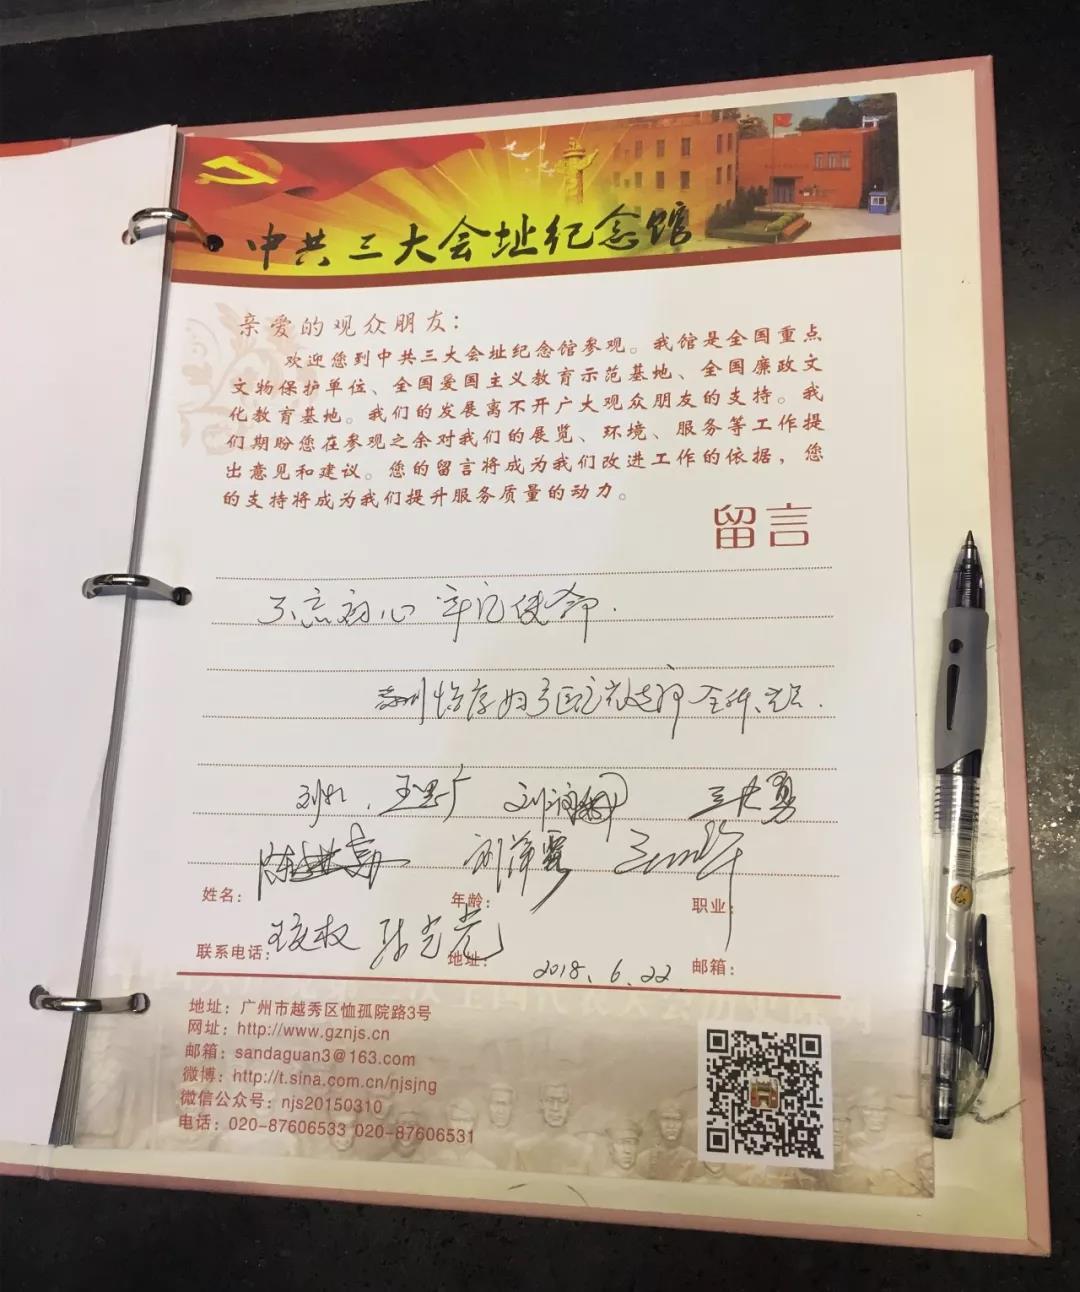 中共三大会址纪念馆
亲爱的观众朋友：
欢迎您到中共三大会址纪念馆参观。我馆是全国重点
文物保护单位、全国爱国主义教育示范基地、全国廉政文
化教育基地。我们的发展离不开广大观众朋友的支持。我
们期盼您在参观之余对我们的展览、环境、服务等工作提
出意见和建议。您的留言将成为我们改进工作的依据，您
的支持将成为我们提升服务质量的动力。
留言
不忘初心 牢记使命.
全体党员.
姓名： 年龄： 职业：
联系电话： 地址： 2018.6.22 邮箱：
地址：广州市越秀区恤孤院路3号
网址：http://www.gznjs.cn
邮箱：sandaguan3@163.com
微博：http://t.sina.com.cn/njsjng
微信公众号：njs20150310
电话：020-87606533 020-87606531